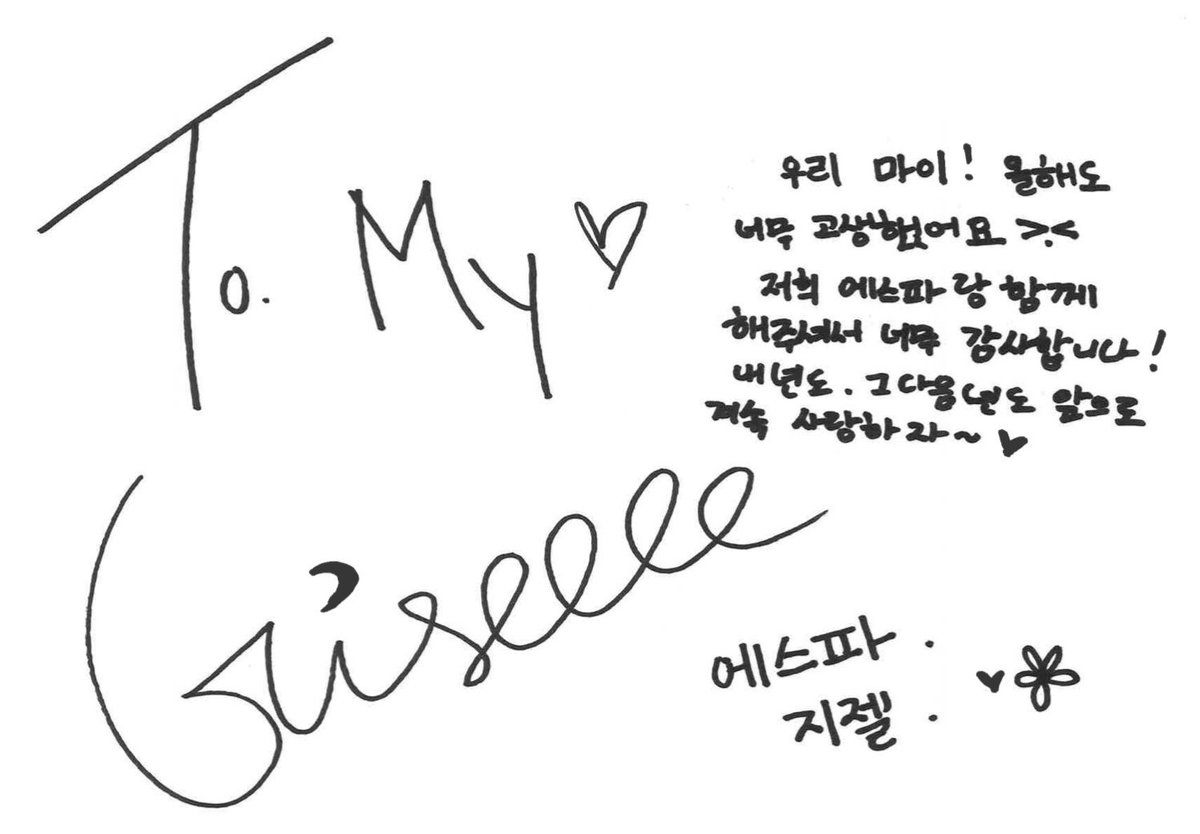 To. My ♡
우리 마이! 올해도
너무 고생했어요 >.<
저희 에스파랑 함께
해주셔서 너무 감사합니다!
내년도. 그다음년도 앞으로
계속 사랑하자~ ♥
Giselle
에스파.
지젤. ♥